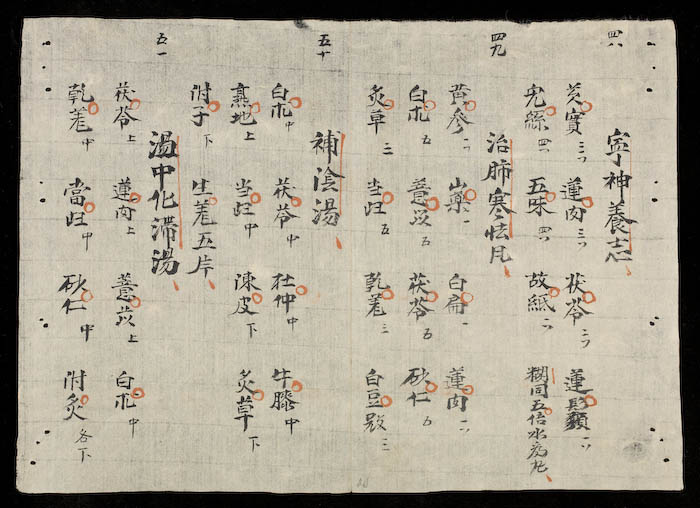 四八
寧神養志
芡實 三 蓮肉 三 茯苓 二 蓮鬚
兎絲 四 五味 四 故紙 糊同五倍水為丸
四九
治肺寒怯凡
黄參 山藥 一 白扁 一 蓮肉
白朮 五 薏苡 五 茯苓 五 砂仁 五
炙草 三 当归 五 乾羗 三 白豆 三
五十
補陰湯
白朮 中 茯苓 中 杜仲 中 牛膝 中
熟地 上 当归 中 陳皮 下 炙草 下
附子 下 生羗五片
五一
温中化滯湯
茯苓 上 蓮肉 上 薏苡 上 白朮 中
乾羗 中 當归 中 砂仁 中 附炙 各下